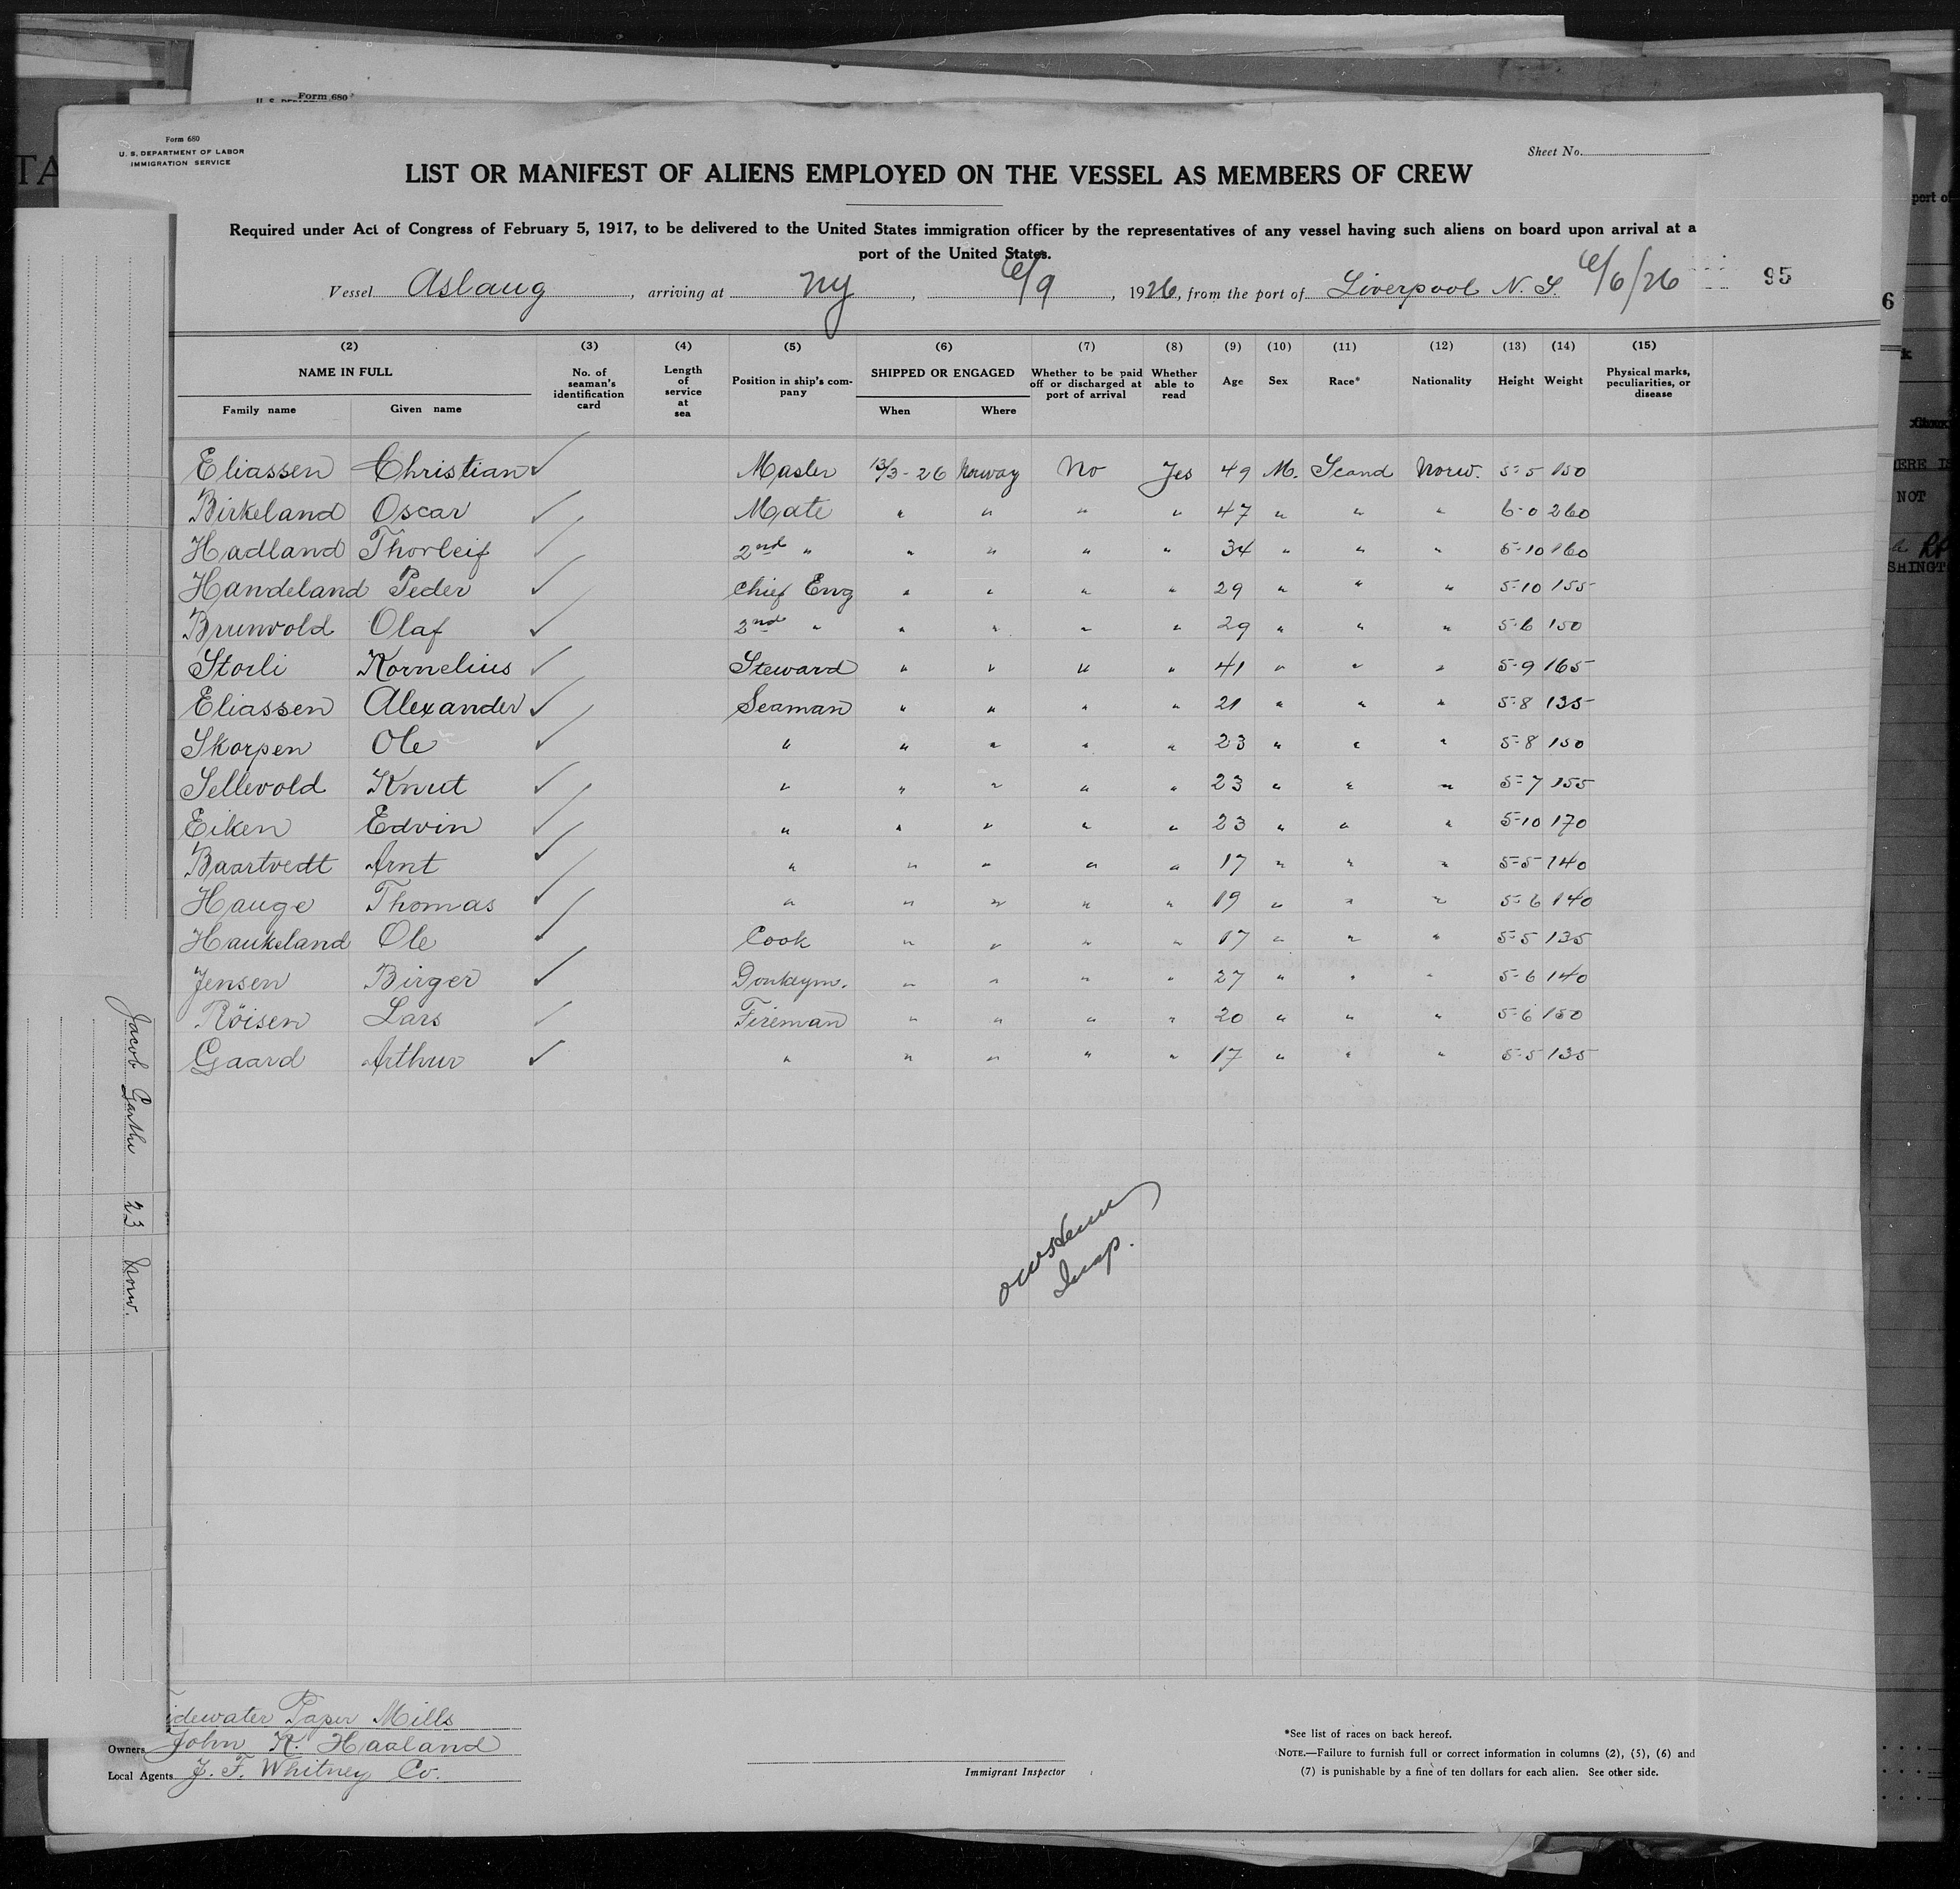 Form 680
Form 680
U. S. DEPARTMENT OF LABOR
IMMIGRATION SERVICE
Sheet No.
LIST OR MANIFEST OF ALIENS EMPLOYED ON THE VESSEL AS MEMBERS OF CREW
Required under Act of Congress of February 5, 1917, to be delivered to the United States immigration officer by the representatives of any vessel having such aliens on board upon arrival at a
port of the United States.
Vessel Aslaug, arriving at NY, 6/9, 1926, from the port of Liverpool N. S. 6/6/26 95
(2) (3) (4) (5) (6) (7) (8) (9) (10) (11) (12) (13) (14) (15)
NAME IN FULL No. of seaman's identification card Length of service at sea Position in ship's company SHIPPED OR ENGAGED Whether to be paid off or discharged at port of arrival Whether able to read Age Sex Race* Nationality Height Weight Physical marks, peculiarities, or disease
Family name Given name When Where
Eliassen Christian ✓ Master 13/3-26 Norway No Yes 49 M. Scand Norw. 5-5 150
Birkeland Oscar ✓ Mate " " " " 47 " " " 6-0 260
Hadland Thorleif ✓ 2nd " " " " " 34 " " " 5-10 160
Handeland Peder ✓ Chief Eng " " " " 29 " " " 5-10 155
Brunvold Olaf ✓ 2nd " " " " " 29 " " " 5-6 150
Storli Kornelius ✓ Steward " " " " 41 " " " 5-9 165
Eliassen Alexander ✓ Seaman " " " " 21 " " " 5-8 135
Skorpen Ole ✓ " " " " " 23 " " " 5-8 150
Sellevold Knut ✓ " " " " " 23 " " " 5-7 155
Eiken Edvin ✓ " " " " " 23 " " " 5-10 170
Baartvedt Arnt ✓ " " " " " 17 " " " 5-5 140
Hauge Thomas ✓ " " " " " 19 " " " 5-6 140
Haukeland Ole ✓ Cook " " " " 17 " " " 5-5 135
Jensen Birger ✓ Donkeym. " " " " 27 " " " 5-6 140
Röisen Lars ✓ Fireman " " " " 20 " " " 5-6 150
Gaard Arthur ✓ " " " " " 17 " " " 5-5 135
Jacob Garthe 23 Norw.
Insp.
idewater Paper Mills
Owners John K. Haaland
Local Agents J. F. Whitney Co.
Immigrant Inspector
*See list of races on back hereof.
NOTE.—Failure to furnish full or correct information in columns (2), (5), (6) and
(7) is punishable by a fine of ten dollars for each alien. See other side.